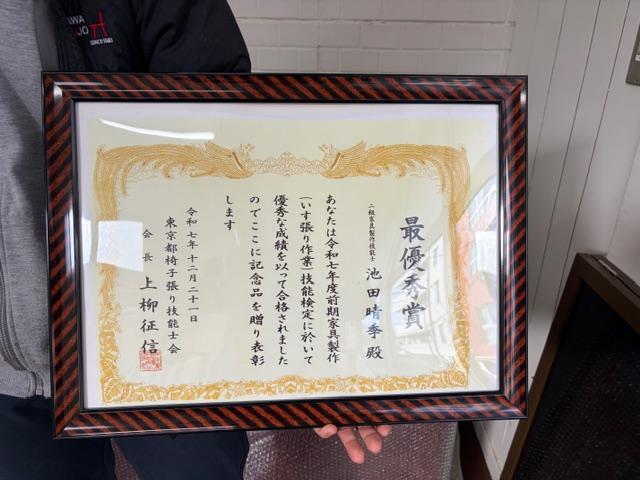 最優秀賞
二級家具製作技能士
池田晴季殿
あなたは令和七年度前期家具製作
(いす張り作業)技能検定に於いて
優秀な成績を以って合格されました
のでここに記念品を贈り表彰
します
令和七年十二月二十一日
東京都椅子張り技能士会
会長 上柳征信